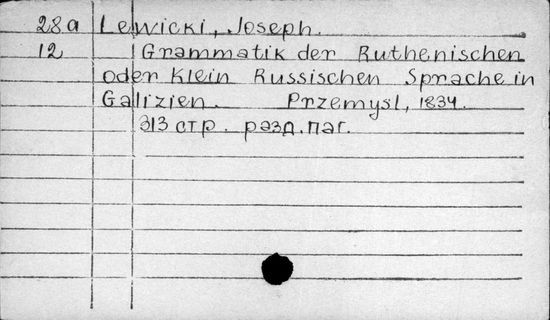 28a Lewicki, Joseph.
12 Grammatik der Ruthenischen
oder Klein Russischen Sprache in
Galizien. Przemysl, 1834.
313 стр. разд. паг.